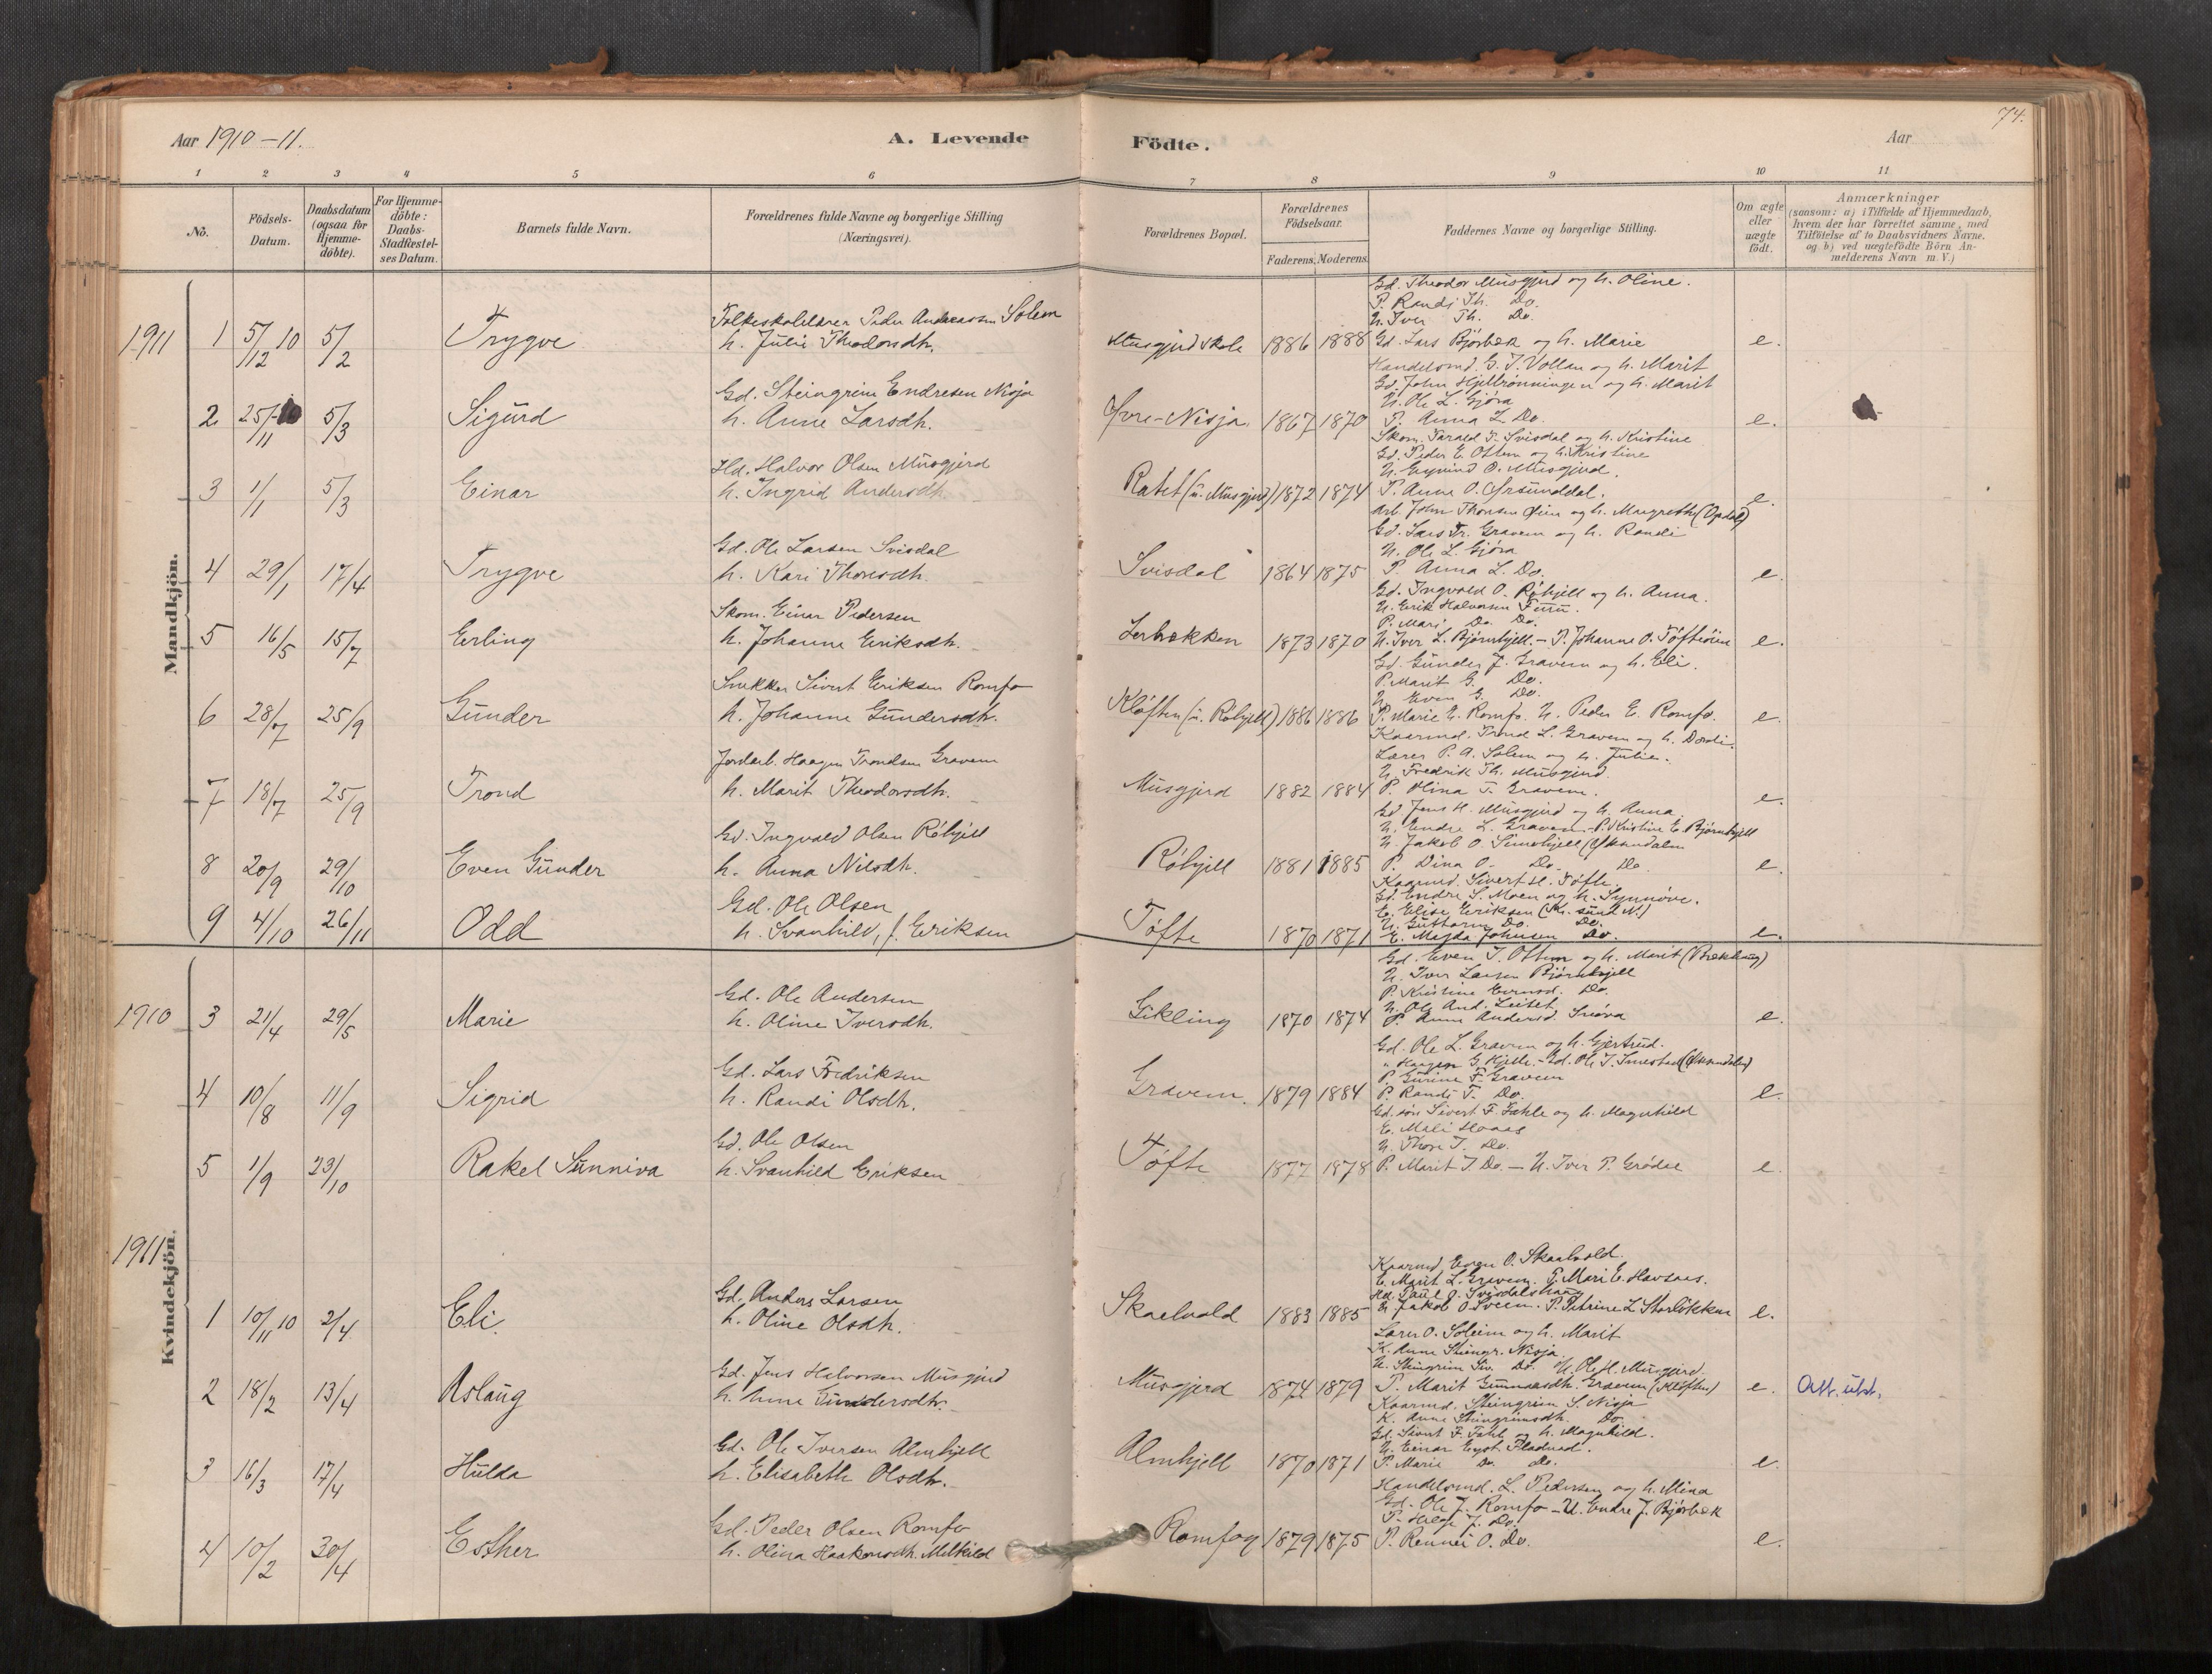 74.
Aar 1910-11.
A. Levende
Födte.
Aar
1 2 3 4 5 6 7 8 9 10 11
No.
Födsels-Datum.
Daabsdatum (ogsaa for Hjemme-döbte).
For Hjemme-döbte: Daabs-Stadfæstel-ses Datum.
Barnets fulde Navn.
Forældrenes fulde Navne og borgerlige Stilling (Næringsvei).
Forældrenes Bopæl.
Forældrenes Födselsaar.
Faderens. Moderens.
Faddernes Navne og borgerlige Stilling.
Om ægte eller uægte födt.
Anmærkninger
(saasom: a) i Tilfælde af Hjemmedaab, hvem der har forrettet samme, med Tilföielse af to Daabsvidners Navne, og b) ved uægtefödte Börn An-melderens Navn m. V.)
Mandkjön.
Gd. Theodor Musgjerd og h. Oline.
P. Randi Th. Do.
U. Iver Th. Do.
Folkeskolelærer Peder Andreassen Solem
1911 1 5/12 10 5/2 Trygve h. Julie Theodorsdh. Musgjerd skole 1886 1888 Gd. Lars Bjørbæk og h. Marie e.
Handelsmd. G. J. Vollan og h. Marit
Gd. John Hjellrønningen og h. Marit
Gd. Steingrim Endresen Nisja
U. Ole L. Gjøra
2 25/11-10 5/3 Sigurd h. Anne Larsdh. Øvre-Nisja 1867 1870 P. Anna L. Do. e.
Skom. Tarald T. Svisdal og h. Kristine
Gd. Peder E. Ottem og h. Kristine
Hd. Halvor Olsen Musgjerd
U. Eyvind O. Musgjerd.
3 1/1 5/3 Einar h. Ingrid Andersdh. Røtet (u. Musgjerd) 1872 1874 P. Anne O. Grsunddal. e.
Arb. John Thorsen Øien og h. Margrethe (Opdal)
Gd. Lars Fr. Gravem og h. Randi
Gd. Ole Larsen Svisdal
U. Ole L. Gjøra
4 29/1 17/4 Trygve h. Kari Thoresdh. Svisdal 1864 1875 P. Anna L. Do. e.
Gd. Ingvald O. Røhjell og h. Anna.
U. Erik Halvorsen Furu.
Skom. Einar Pedersen
P. Mari Do. Do.
5 16/5 15/7 Erling h. Johanne Eriksdh. Lerbækken 1873 1870 U. Iver L. Bjørnhjell. - P. Johanne O. Tøfteøien e.
Gd. Gunder J. Gravem og h. Eli.
P. Marit G. Do.
Snekker Sivert Eriksen Romfo
U. Even G. Do.
6 28/7 25/9 Gunder h. Johanne Gundersdh. Kløften (u. Røhjell) 1886 1886 P. Marie E. Romfo. U. Peder E. Romfo. e.
Kaarmd. Trond L. Gravem og h. Dordi.
Lærer P. A. Solem og h. Julie.
Jordarb. Haagen Trondsen Gravem
U. Fredrik Th. Musgjerd
7 18/7 25/9 Trond h. Marit Theodorsdh. Musgjerd 1882 1884 P. Olina T. Gravem. e.
Gd. Jens H. Musgjerd og h. Anna
U. Endre L. Gravem. - P. Kristine E. Bjørnhjell
Gd. Ingvald Olsen Røhjell
U. Jakob O. (Øksendalen
8 20/9 29/10 Even Gunder h. Anna Nilsdh. Røhjell 1881 1885 P. Dina O. Do. Do e.
Kaarmd. Sivert H. Tøfte.
Gd. Endre S. Moen og h. Synnøve.
E. Elise Eriksen (Kr. sund N.)
Gd. Ole Olsen
U. Guttorm Do. Do.
9 4/10 26/11 Odd h. Svanhild, f. Eriksen Tøfte 1870 1871 E. Magda Johnsen Do. e.
Kvindekjön.
Gd. Even J. Ottem og h. Marit (Brækhaug)
U. Iver Larsen Bjørnhjell
P. Kristine Evensd. Do.
Gd. Ole Andersen
U. Ole And. Leitet
1910 3 21/4 29/5 Marie h. Oline Iversdh. Gikling 1870 1874 P. Anne Andersd. e.
Gd. Ole L. Gravem og h. Gjertrud.
" Haagen G. Hjelle. - Gd. Ole J. (Øksendalen)
Gd. Lars Fredriksen
P. Gurine F. Gravem
4 10/8 11/9 Sigrid h. Randi Olsdh. Gravem. 1879 1884 P. Randi T. Do. e.
Gd. søn Sivert F. Fahle og h. Magnhild
E. Mali Hoaas
Gd. Ole Olsen
U. Thore J. Do.
5 1/9 23/10 Rakel Sunniva h. Svanhild Eriksen Tøfte 1877 1878 P. Marit J. Do. - U. Iver P. Grødal e.
Kaarmd Even O. Skaalvold.
E. Marit L. Gravem. P. Mari E. Havsaas.
Gd. Anders Larsen
Hd. Paul O. Svisdalshaug
1911 1 10/11 10 2/4 Eli. h. Oline Olsdh. Skaelvold 1883 1885 U. Jakob O. Sveen. P. Petrine L. Storløkken e.
Lærer O. Soleim og h. Marit
K. Anne Steingr. Nisja.
Gd. Jens Halvorsen Musgjerd
U. Steingrim Siv. Do. U. Ole H. Musgjerd.
2 18/2 13/4 Aslaug h. Anne Gundersdh. Musgjerd 1874 1879 P. Marit Gunnarsdh. Gravem (Kløften) e. Att. utst.
Kaarmd. Steingrim S. Nisja
K. Anne Steingrimsdh. Do
Gd. Sivert F. Fahle og h. Magnhild.
Gd. Ole Iversen Almhjell
U. Einar Eyst. Fladvad.
3 16/3 17/4 Hulda h. Elisabeth Olsdh. Almhjell 1870 1871 P. Marie Do. Do. e.
Handelsmd. L. Pedersen og h. Mina
Gd. Ole J. Romfo - U. Endre J. Bjørbæk
Gd. Peder Olsen Romfo
P. Helge J. Do.
4 10/2 30/4 Esther h. Olina Haakonsdh. Melkild Romfog 1879 1875 P. Rennei O. Do. e.